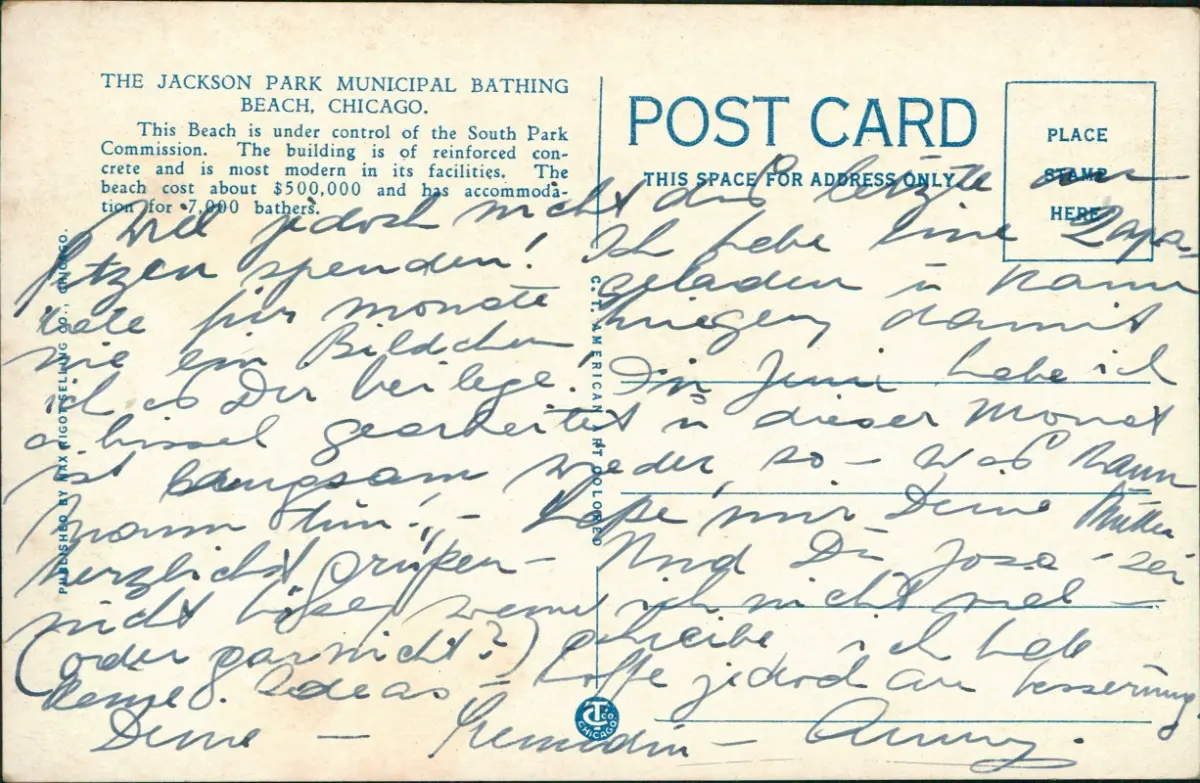 THE JACKSON PARK MUNICIPAL BATHING
BEACH, CHICAGO.
This Beach is under control of the South Park
Commission. The building is of reinforced con-
crete and is most modern in its facilities. The
beach cost about $500,000 and has accommoda-
tion for 7,000 bathers.
POST CARD
THIS SPACE FOR ADDRESS ONLY
PLACE
STAMP
HERE
PUBLISHED BY MAX RIGOT SELLING CO., CHICAGO.
C. T. AMERICAN ART COLORED
Will jedoch nicht das letzte
spenden! Ich habe eine
für Monate geladen u kann
wie ein Bildchen kriegen damit
ich es Dir beilege! In Juni habe ich
a bissel gearbeitet u dieser Monat
ist langsam wieder, so – was kann
mann tun! – Lasse mir Deine Mutter
herzlichst grüßen – Und Du Josa – sei
nicht böse, wenn ich nicht viel –
(oder garnicht?) schreibe ich habe
keine Ideas – hoffe jedoch an besserung
Deine – Freundin –
CT CO
CHICAGO